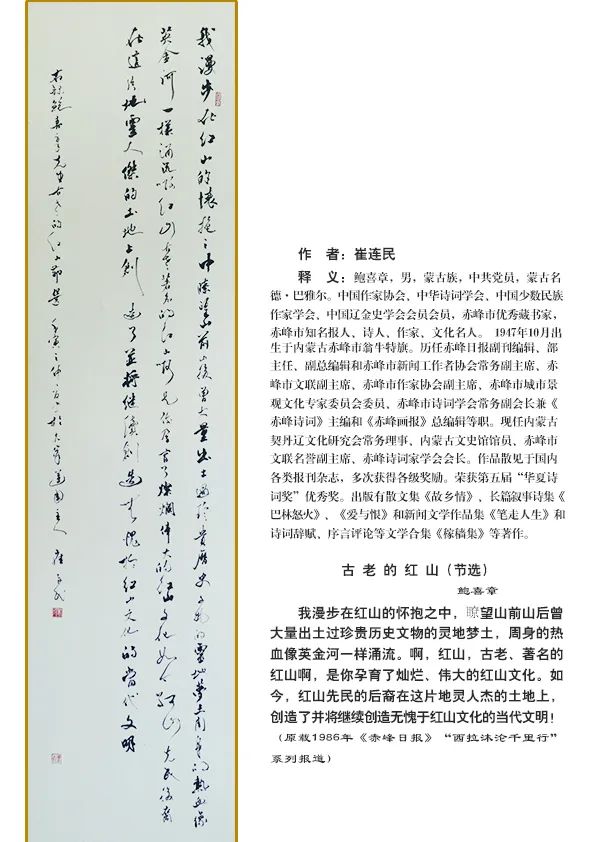 我漫步在红山的懷抱之中瞭望山前山後曾大量出土过珍贵歷史文物的靈地夢土周身的熱血像
英金河一樣涌流啊红山古老著名的红山啊是你孕育了燦爛偉大的红山文化如今红山先民後裔
在這片地靈人傑的土地上创造了並將继續创造无愧於红山文化的當代文明
右録鲍喜章先生古老的红山節選
作 者：崔连民
释 义：鲍喜章，男，蒙古族，中共党员，蒙古名
德·巴雅尔。中国作家协会、中华诗词学会、中国少数民族
作家学会、中国辽金史学会会员，赤峰市优秀藏书家，
赤峰市知名报人、诗人、作家、文化名人。 1947年10月出
生于内蒙古赤峰市翁牛特旗。历任赤峰日报副刊编辑、部
主任、副总编辑和赤峰市新闻工作者协会常务副主席、赤
峰市文联副主席、赤峰市作家协会副主席、赤峰市城市景
观文化专家委员会委员、赤峰市诗词学会常务副会长兼《
赤峰诗词》主编和《赤峰画报》总编辑等职。现任内蒙古
契丹辽文化研究会常务理事、内蒙古文史馆馆员、赤峰市
文联名誉副主席、赤峰诗词家学会会长。作品散见于国内
各类报刊杂志，多次获得各级奖励。荣获第五届“华夏诗
词奖”优秀奖。出版有散文集《故乡情》、长篇叙事诗集《
巴林怒火》、《爱与恨》和新闻文学作品集《笔走人生》和
诗词辞赋、序言评论等文学合集《稼穑集》等著作。
古老的红山（节选）
鲍喜章
我漫步在红山的怀抱之中，瞭望山前山后曾
大量出土过珍贵历史文物的灵地梦土，周身的热
血像英金河一样涌流。啊，红山，古老、著名的
红山啊，是你孕育了灿烂、伟大的红山文化。如
今，红山先民的后裔在这片地灵人杰的土地上，
创造了并将继续创造无愧于红山文化的当代文明！
（原载1986年《赤峰日报》“西拉沐沦千里行”
系列报道）